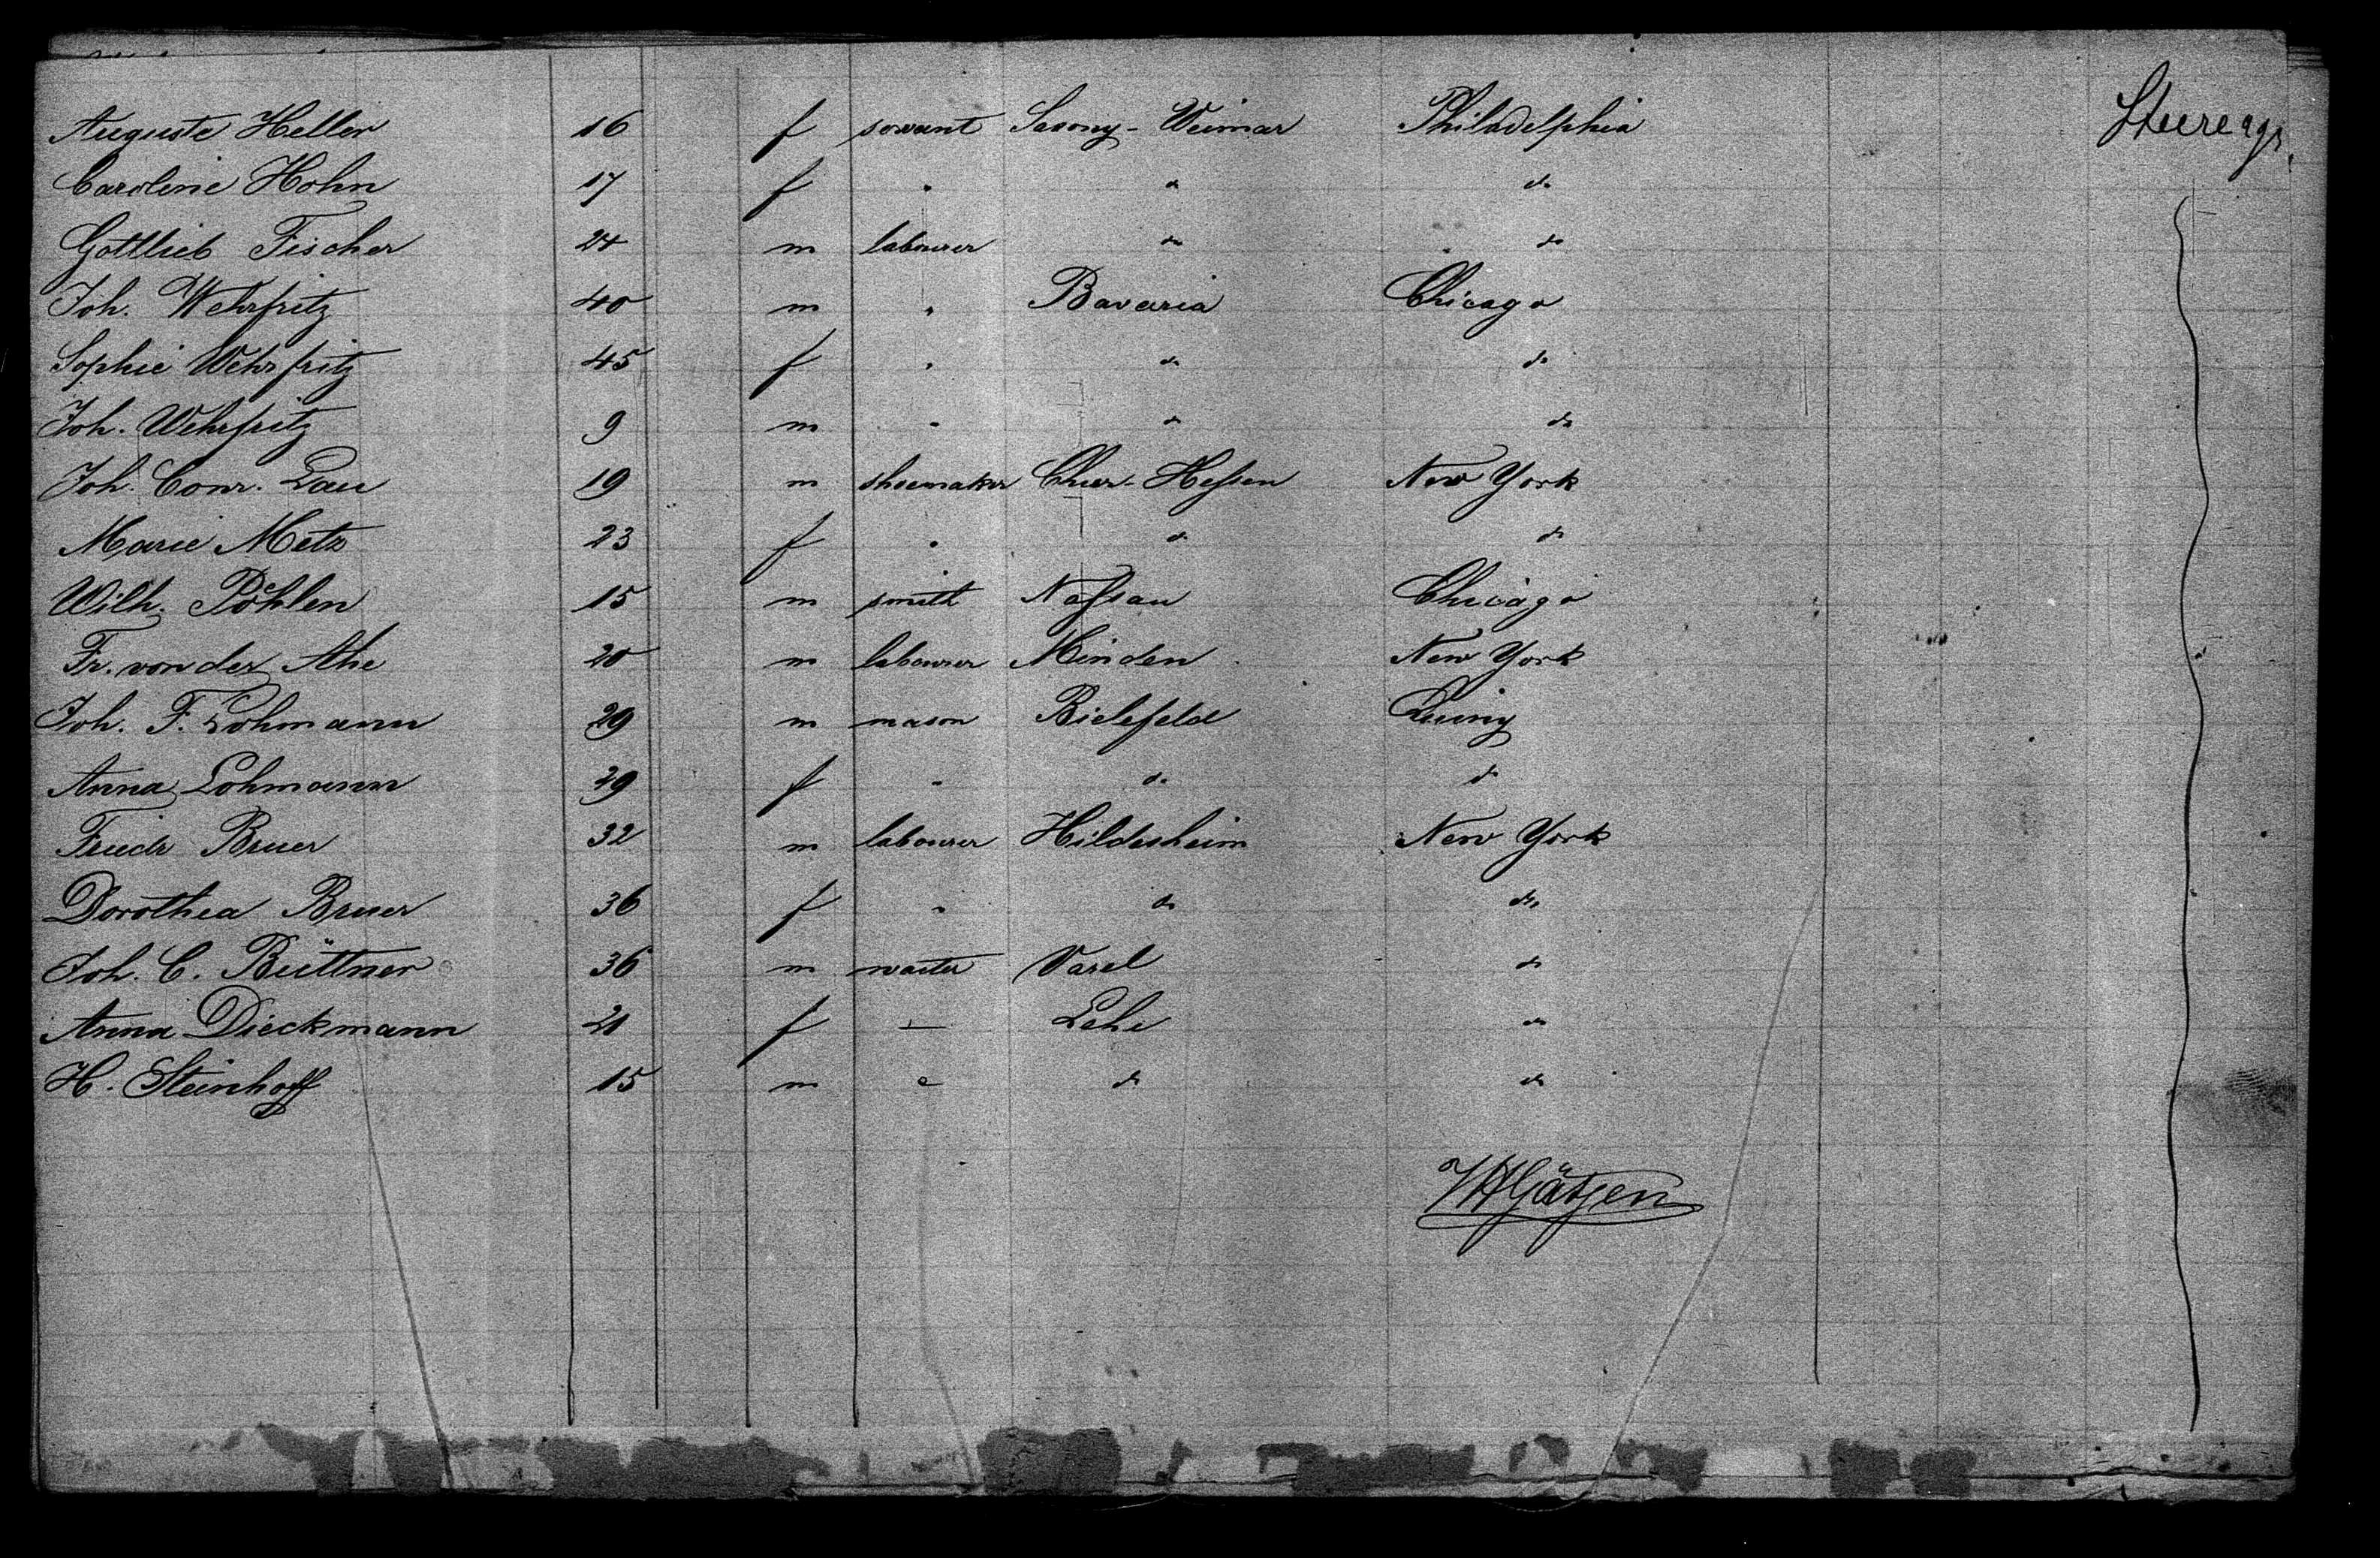 Steerage
Auguste Heller 16 f servant Saxony-Weimar Philadelphia
Caroline Hohn 17 f " do do
Gottlieb Fischer 24 m labourer do do
Joh. Wehrfritz 40 m " Bavaria Chicago
Sophie Wehrfritz 45 f " do do
Joh. Wehrfritz 9 m " do do
Joh. Conr. Lau 19 m shoemaker Chur-Hessen New York
Marie Metz 23 f " do do
Wilh. Pöhlen 15 m smith Nassau Chicago
Fr. von der Ahe 20 m labourer Minden New York
Joh. F. Lohmann 29 m mason Bielefeld Quiny
Anna Lohmann 29 f " do do
Friedr Bruer 32 m labourer Hildesheim New York
Dorothea Bruer 36 f " do do
Joh. C. Büttner 36 m waiter Varel do
Anna Dieckmann 21 f — Lehe do
H. Steinhoff 15 m - do do